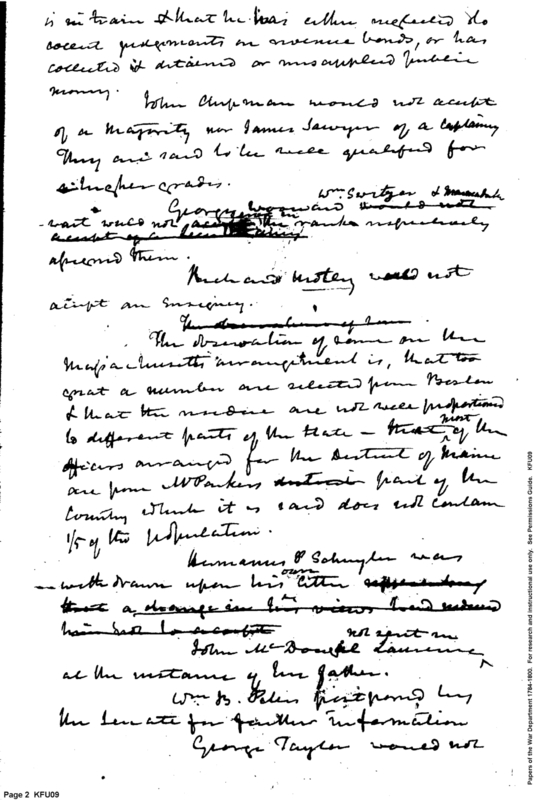 is in train & that he has either neglected to
collect judgements on revenue bonds, or has
collected & detained or misapplied public
money.
John Chipman would not accept
of a Majority nor James Sawyer of a Captaincy
They are said to be well qualified for
higher grades.
Wm Switzer &
George Woodward would not
wait would not serve in the ranks respectively
accept of a
assigned them.
Richard Motley would not
accept an Ensigncy.
The observations of some
The observation of some on the
Massachusetts arrangement is, that too
great a number are selected from Boston
& that the residue are not well proportioned
to different parts of the State – that most of the
officers arranged for the District of Maine
are from Mr Parkers district part of the
Country which it is said does not contain
1/5 of the population.
Hermanus P Schuyler was
withdrawn upon his own letter
that a change in his views had induced
him not to accept
John McDougall Laurence not sent in
at the instance of his father.
Wm B. Peters postponed by
the Senate for further information
George Taylor would not
Page 2 KFU09
Papers of the War Department 1784-1800. For research and instructional use only. See Permissions Guide. KFU09